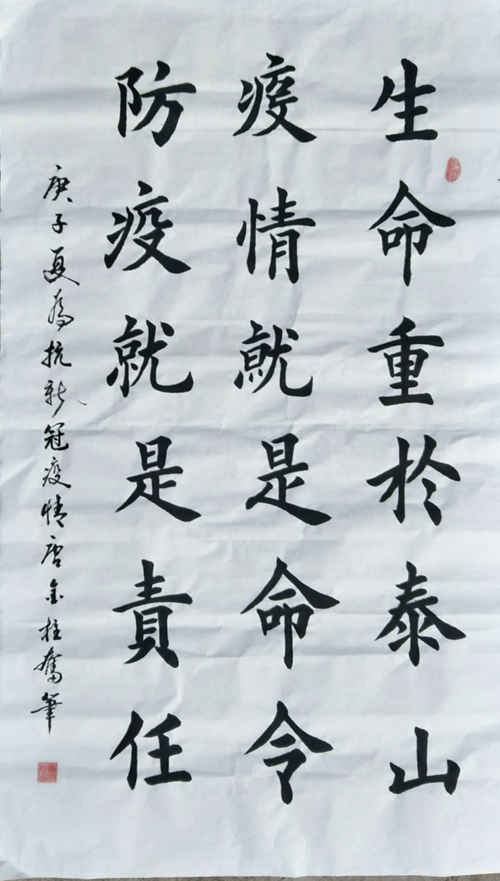 生命重於泰山
疫情就是命令
防疫就是責任
庚子夏為抗新冠疫情唐金柱奮筆